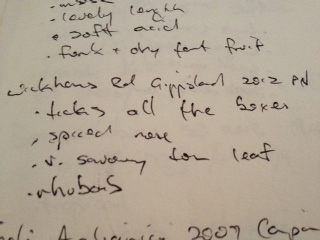 . lovely length
. soft acid
. funk + dry fruit
Wickhams Rd Gippsland 2012 PN
. ticks all the boxes
. spiced nose
. v. savoury tom leaf
. rhubarb
2009